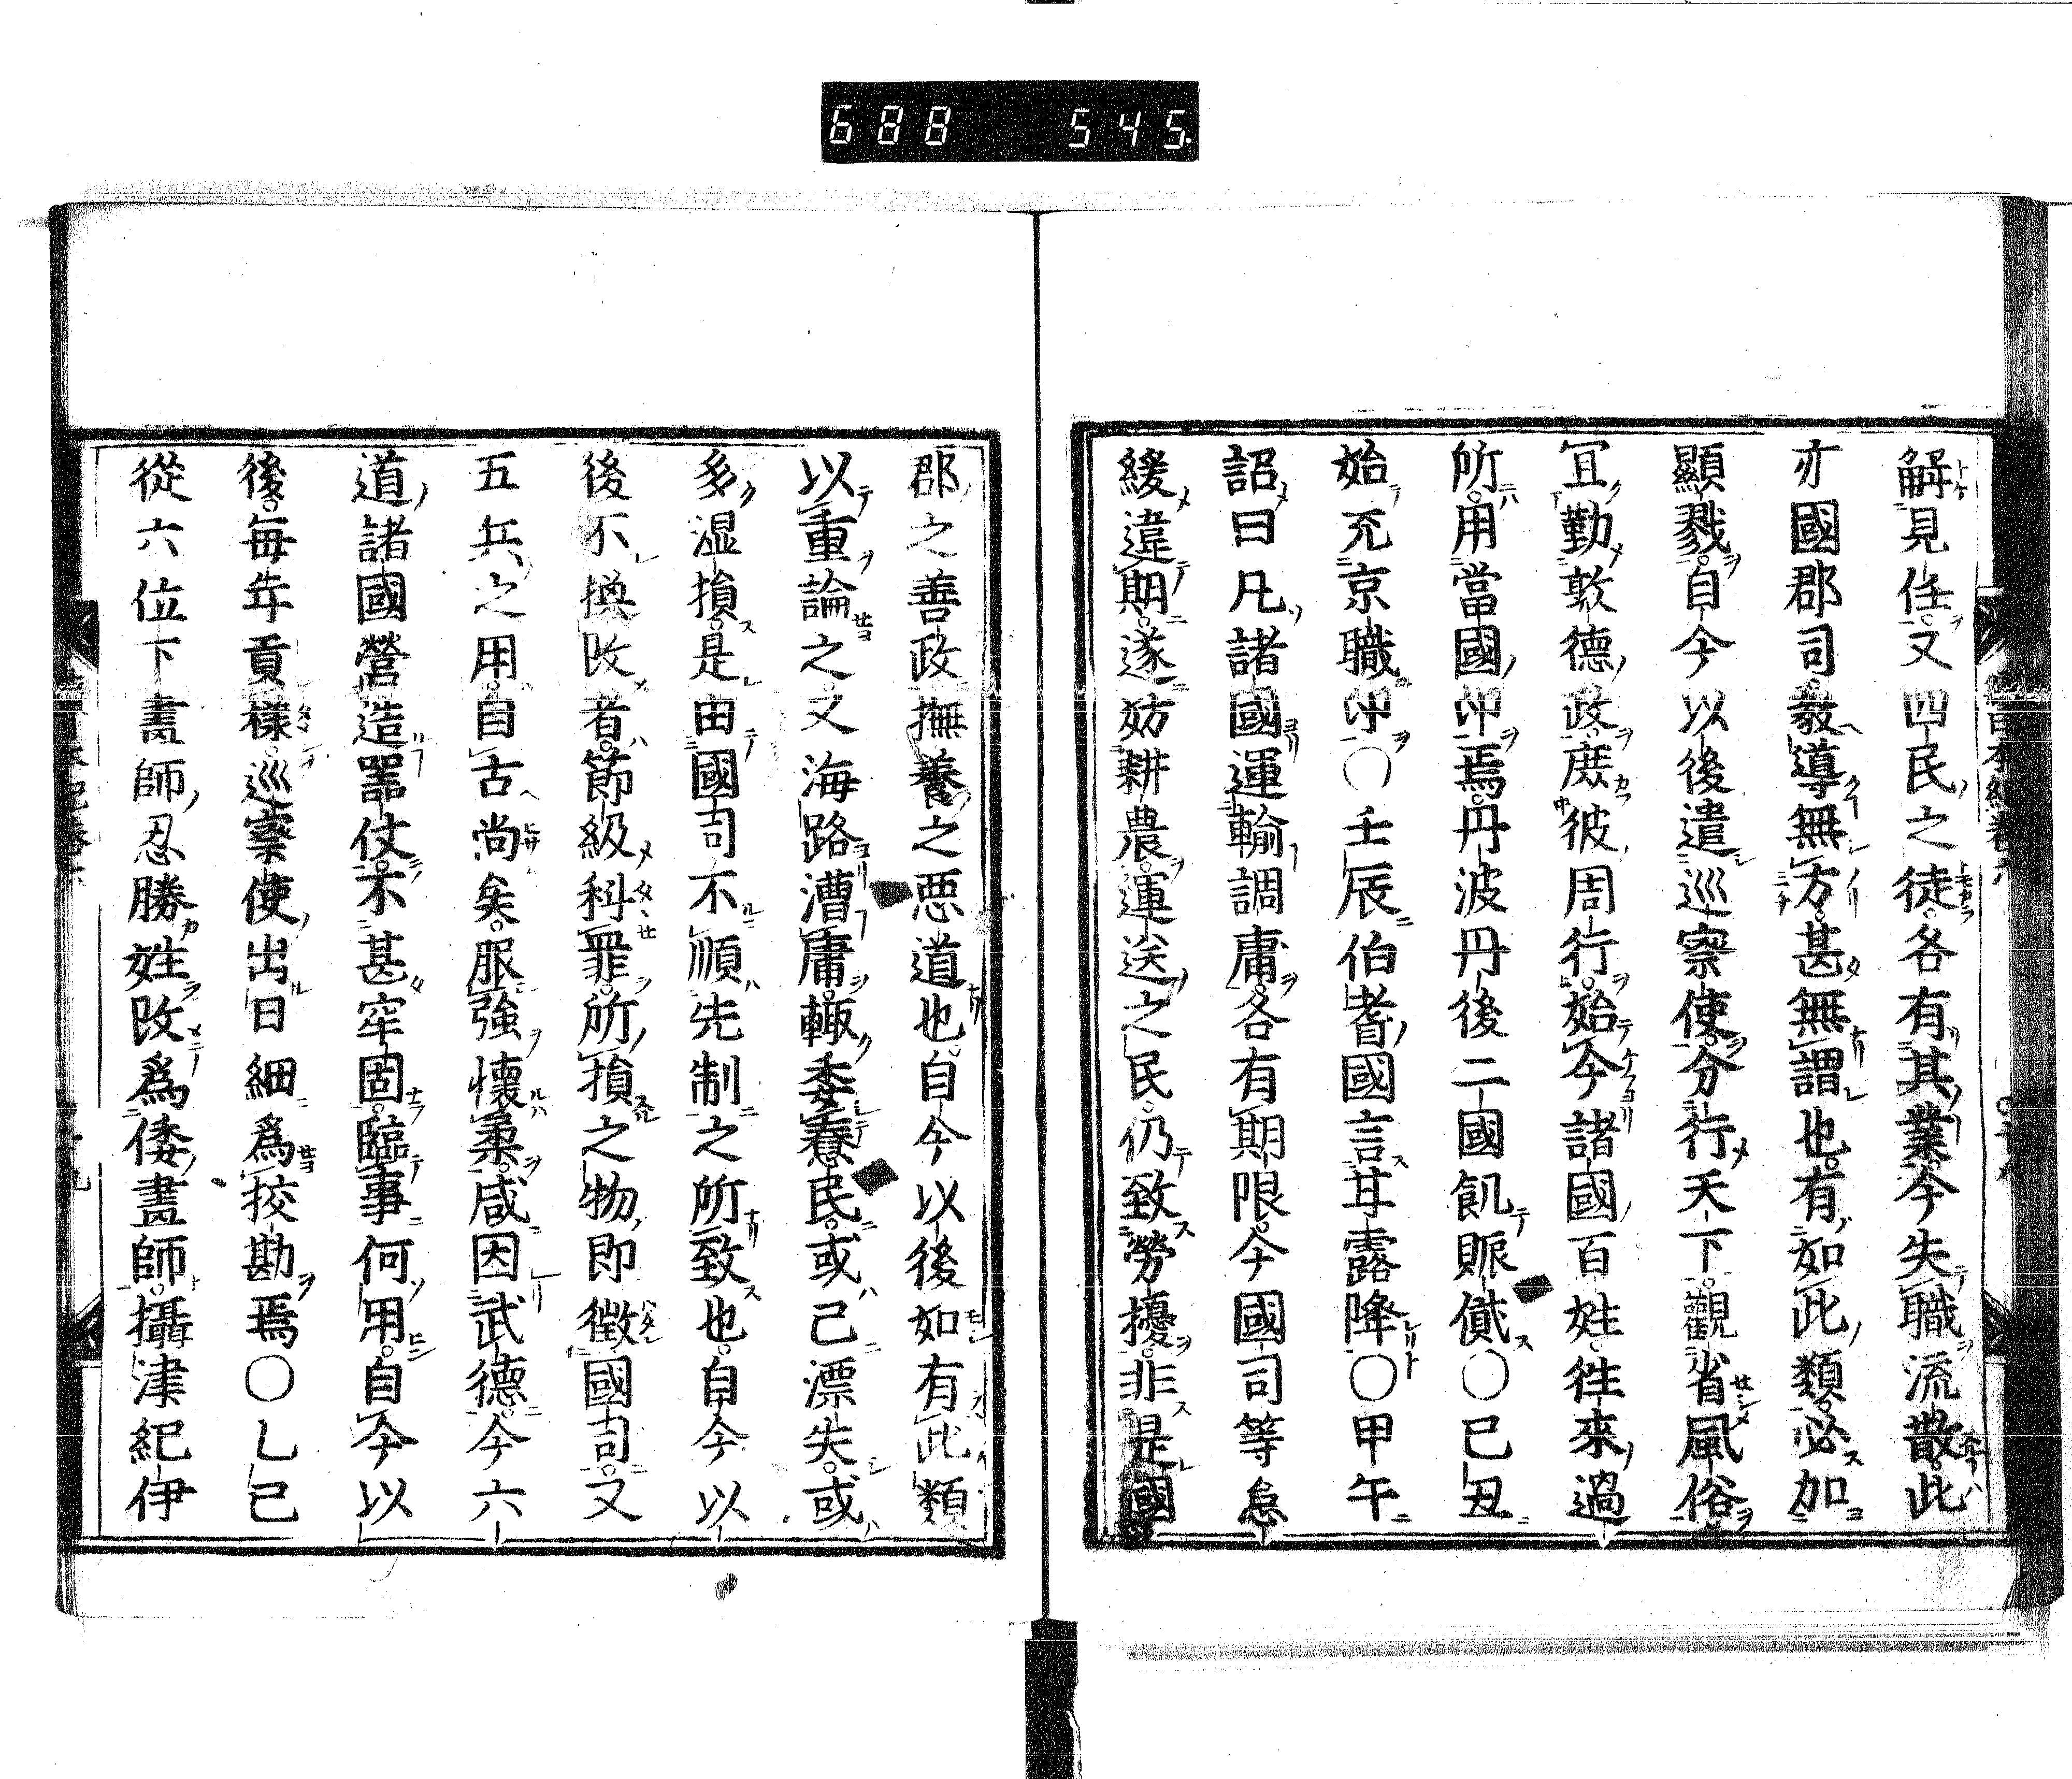 688 545.
解見任。又四民之徒。各有其業。今失職流散。此
亦國郡司。敎導無方。甚無謂也。有如此類。必加
顯戮。自今以後遣巡察使。分行天下。觀省風俗
冝勤敦德政。庶彼周行。始今諸國百姓。徃來過
所。用當國印焉。丹波丹後二國飢賑儎〇巳丑
始充京職印〇壬辰伯耆國言甘露降〇甲午
詔曰凡諸國運輸調庸。各有期限。今國司等怠
緩違期。遂妨耕農。運送之民。仍致勞擾。非是國
郡之善政撫養之悪道也。自今以後如有此類
以重論之又海路漕庸。輙委惷民。或已漂失。或
多湿損。是由國司不順先制之所致也。自今以
後不換改者。節級科罪。所損之物。即徵國司。又
五兵之用。自古尚矣。服強懷柔。咸因武德。今六
道諸國營造噐仗。不甚窂固。臨事何用。自今以
後。每年貢樣。巡察使出日細爲挍勘焉〇乚己
從六位下畵師忍勝姓改爲倭畵師。攝津紀伊